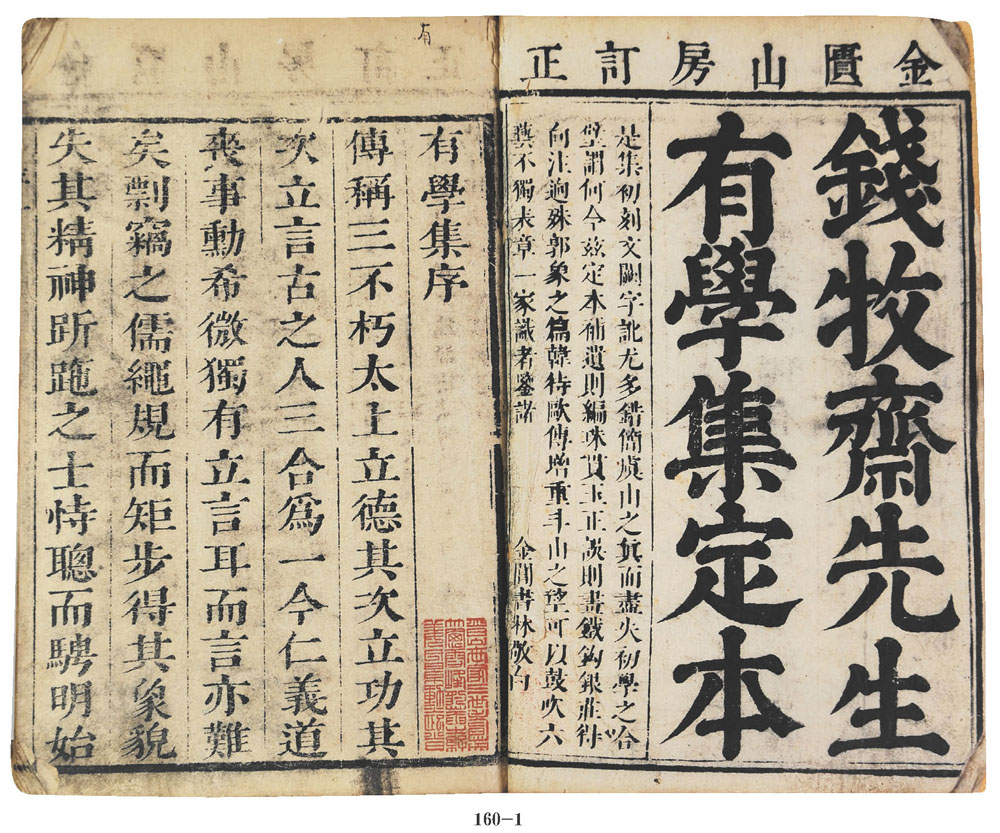 金匱山房訂正
錢牧齋先生
有學集定本
是集初刻文闕字訛尤多錯簡虞山之真面盡失初學之
璧謂何今茲定本補遺則編珠貫玉正誤則畫鐵鈎銀莊待
向注逈殊郭象之篇韓待歐傳增重手山之望可以鼓吹六
藝不獨表章一家識者鑒諸
金閶書林敬白
有
有學集序
傳稱三不朽太上立德其次立功其
次立言古之人三合爲一今仁義道
喪事勳希微獨有立言耳而言亦難
矣剽竊之儒繩規而矩步得其象貌
失其精神跅跑之士恃聰而騁明始
160-1